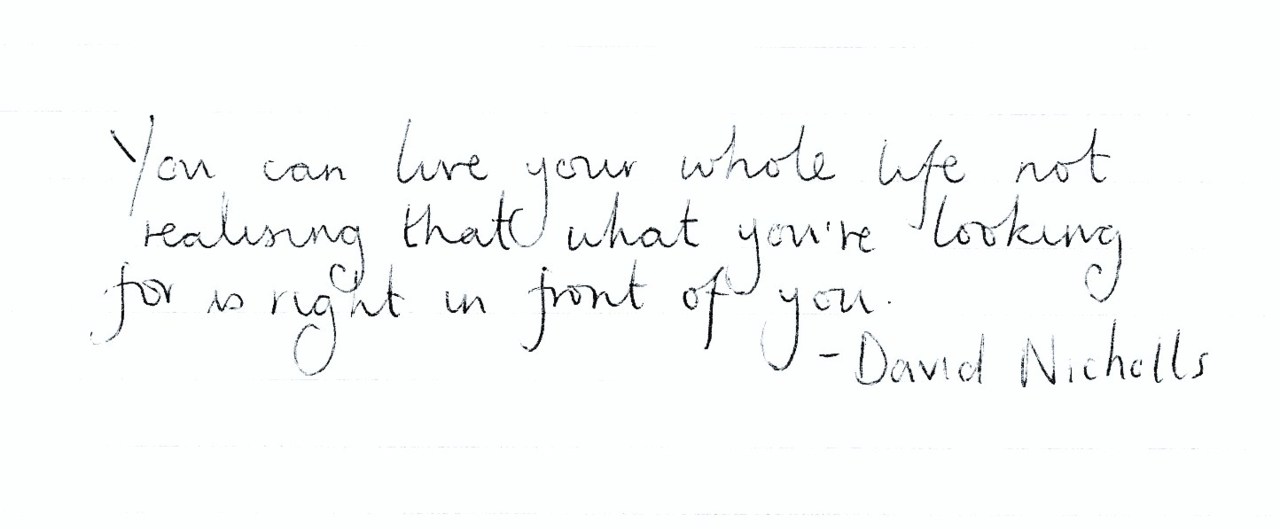 You can live your whole life not
realising that what you're looking
for is right in front of you.
-David Nicholls